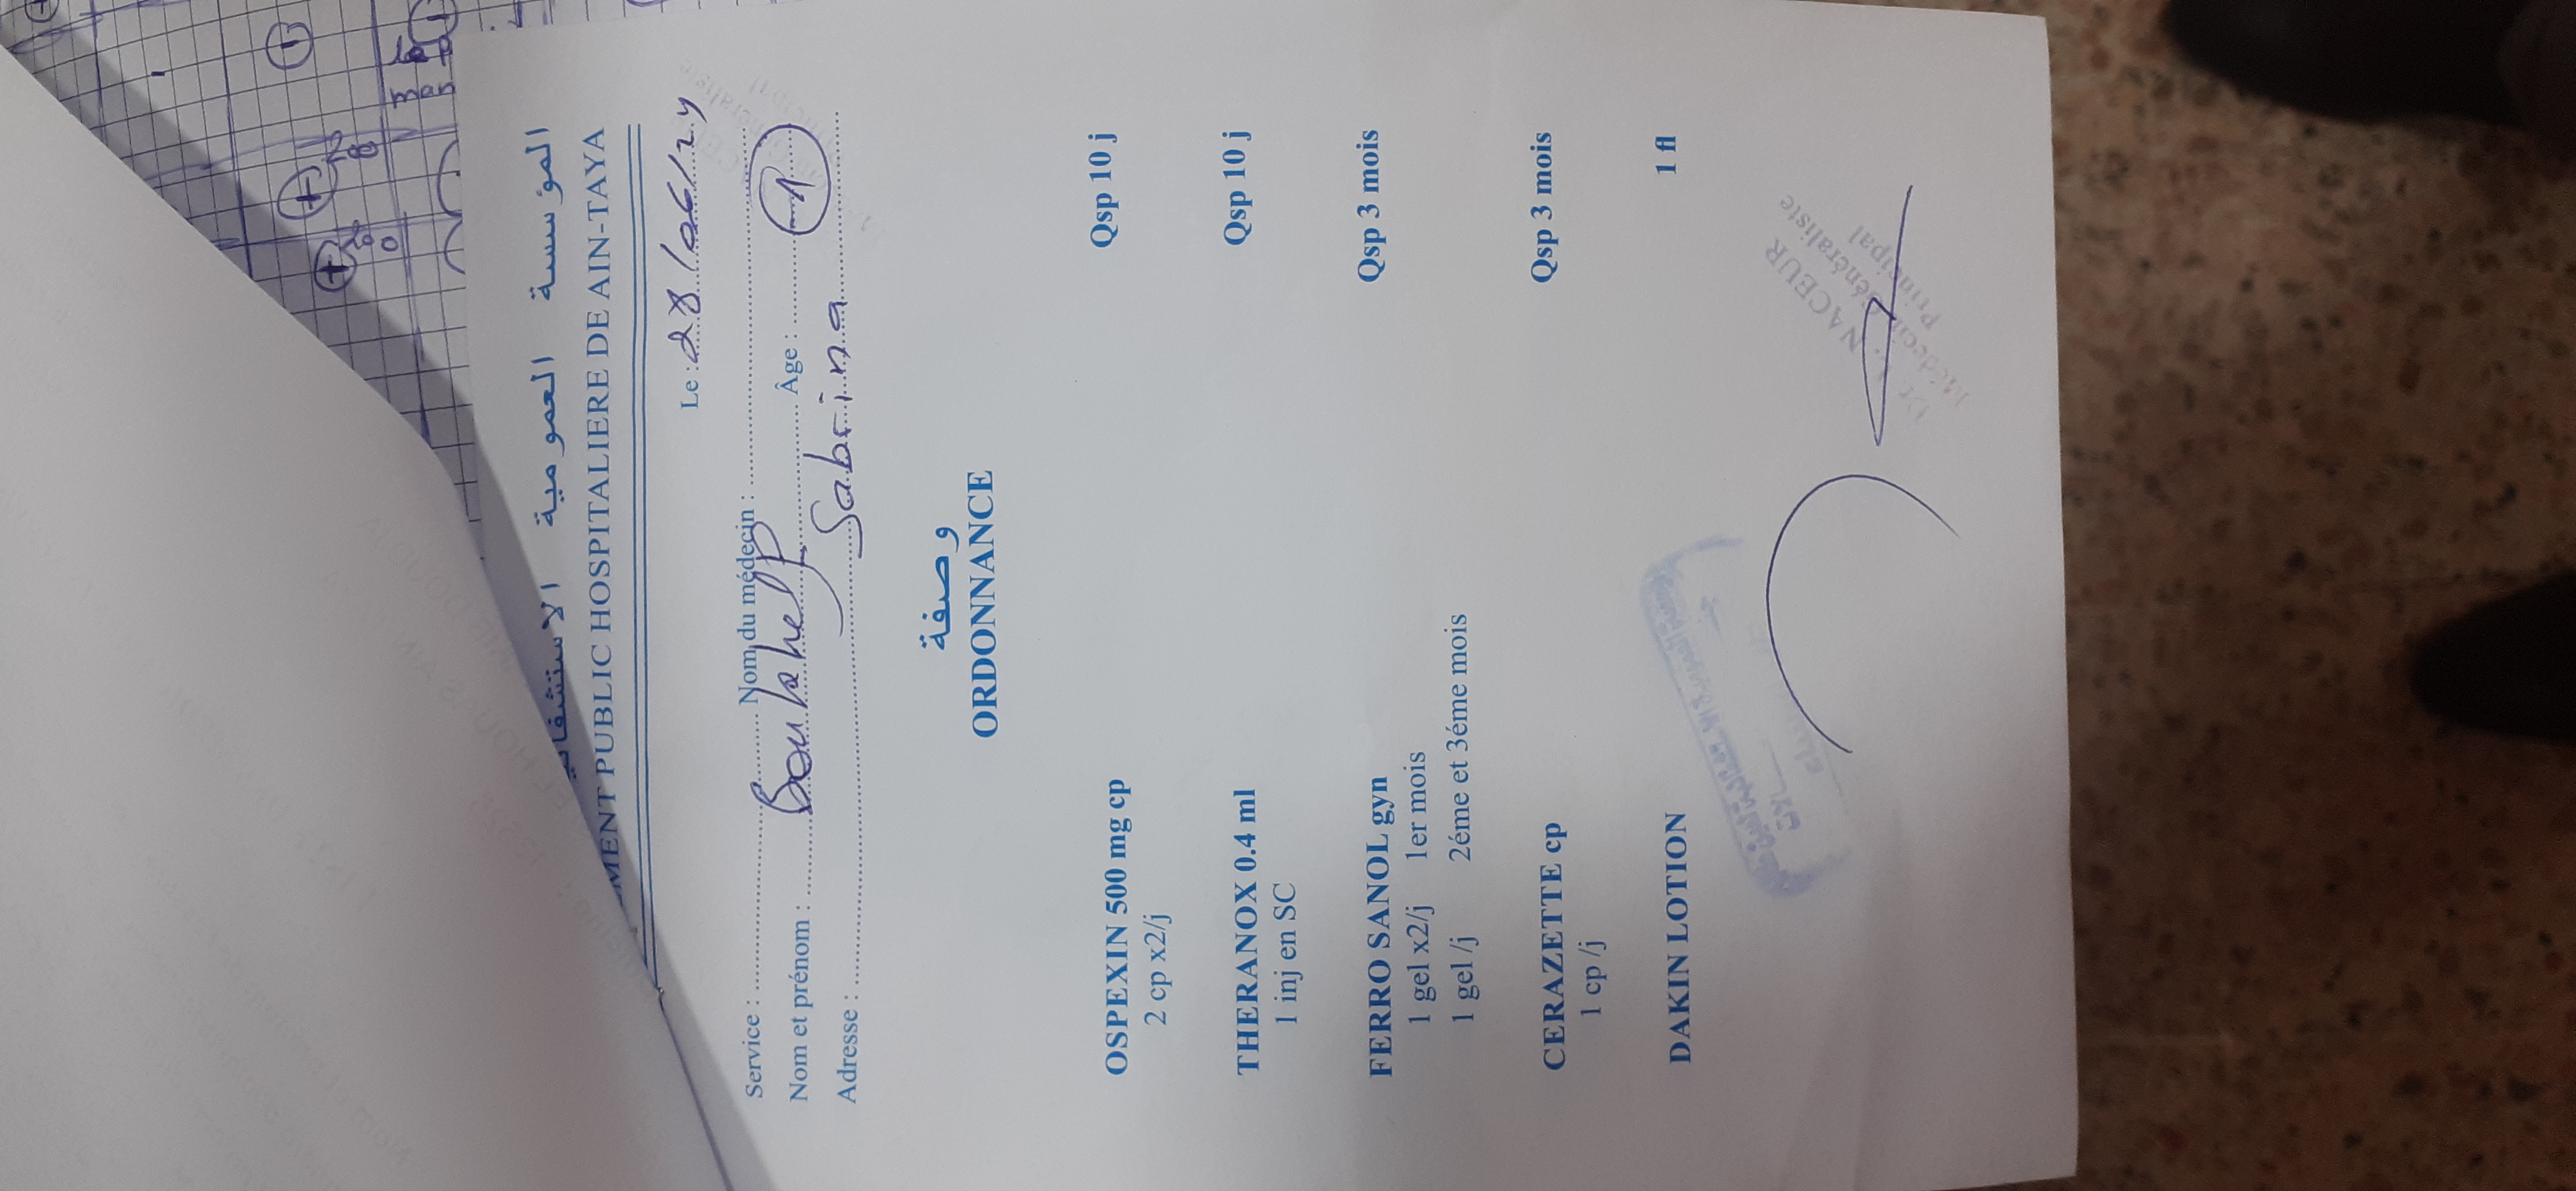 المؤسسة العمومية
MENT PUBLIC HOSPITALIERE DE AIN-TAYA
Le : 28/06/24
Service : Nom du médecin :
Nom et prénom : Âge : 1
Sabrina
Adresse :
وصفة
ORDONNANCE
OSPEXIN 500 mg cp Qsp 10 j
2 cp x2/j
THERANOX 0.4 ml Qsp 10 j
1 inj en SC
FERRO SANOL gyn Qsp 3 mois
1 gel x2/j 1er mois
1 gel /j 2éme et 3éme mois
CERAZETTE cp Qsp 3 mois
1 cp /j
DAKIN LOTION 1 fl
NACEUR
Généraliste
Principal